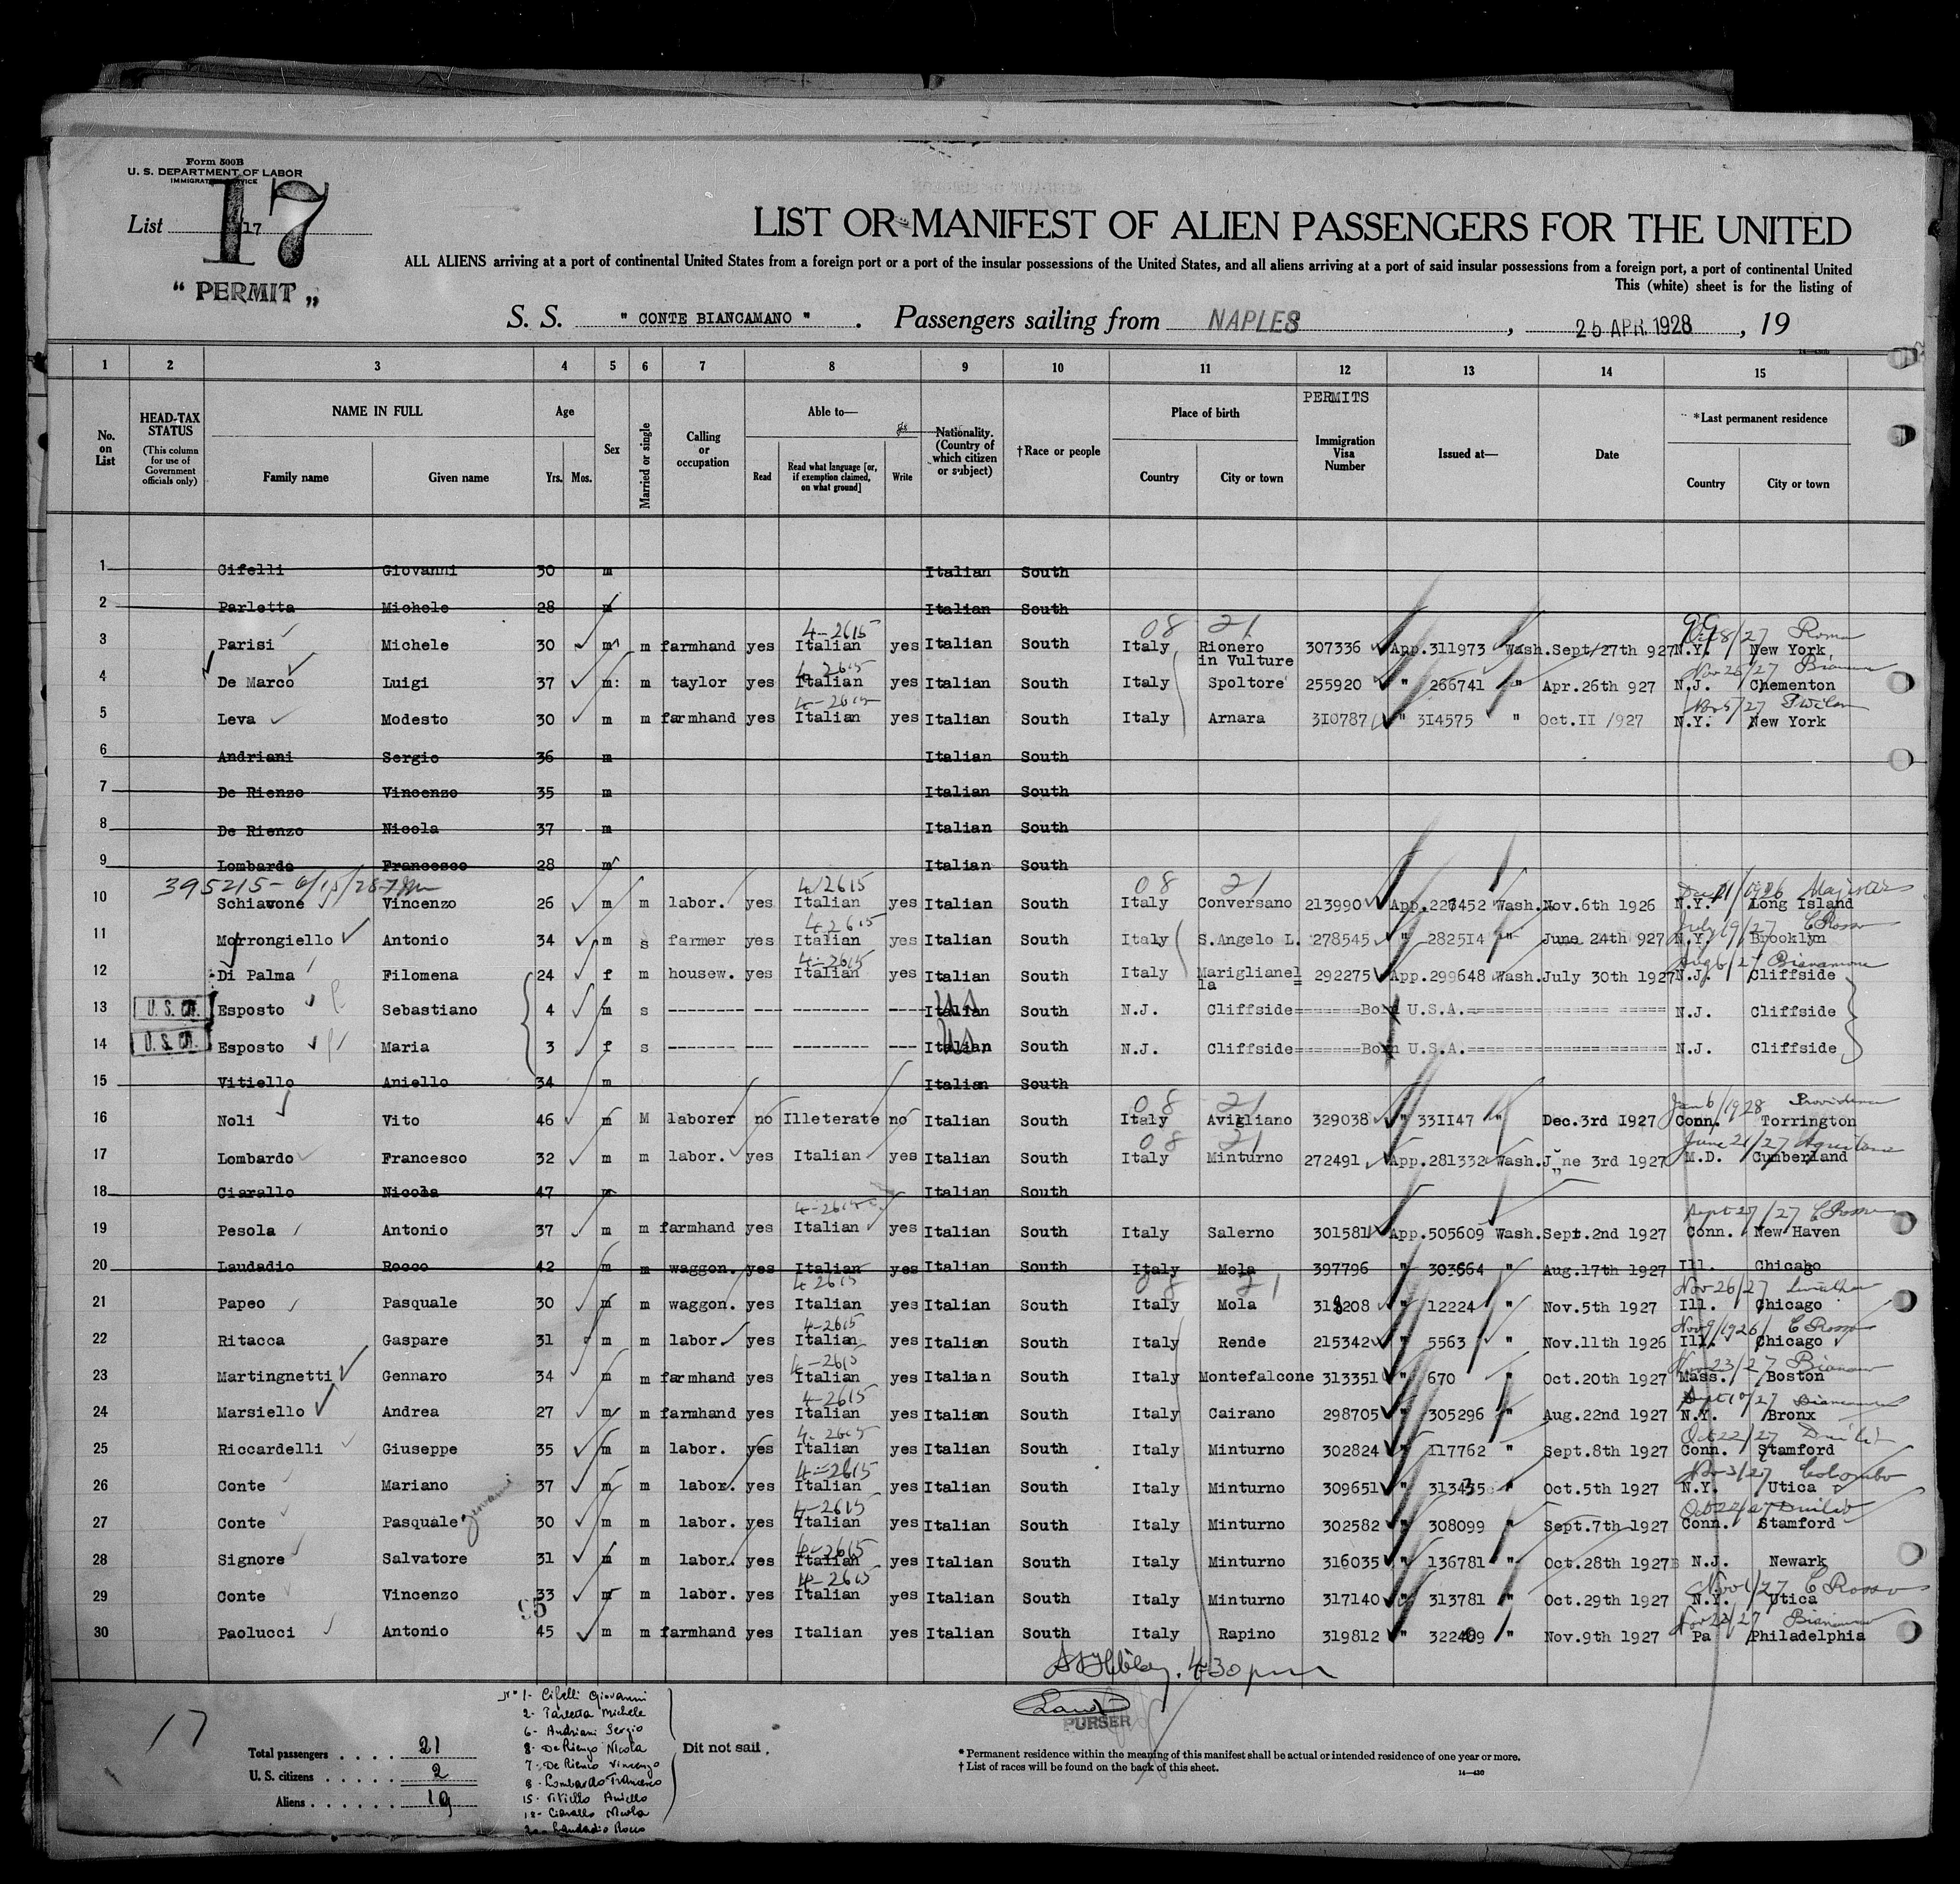 Form 500B
U. S. DEPARTMENT OF LABOR
IMMIGRATION SERVICE
List 17
17
" PERMIT "
LIST OR MANIFEST OF ALIEN PASSENGERS FOR THE UNITED
ALL ALIENS arriving at a port of continental United States from a foreign port or a port of the insular possessions of the United States, and all aliens arriving at a port of said insular possessions from a foreign port, a port of continental United
This (white) sheet is for the listing of
S. S. " CONTE BIANCAMANO " . Passengers sailing from NAPLES , 25 APR. 1928 , 19
1 2 3 4 5 6 7 8 9 10 11 12 13 14 15
No. on List
HEAD-TAX STATUS (This column for use of Government officials only)
NAME IN FULL Family name Given name
Age Yrs. Mos.
Sex
Married or single
Calling or occupation
Able to— Read Read what language [or, if exemption claimed, on what ground] Write
Nationality. (Country of which citizen or subject)
†Race or people
Place of birth Country City or town
PERMITS
Immigration Visa Number
Issued at—
Date
*Last permanent residence Country City or town
1 Cifelli Giovanni 30 m Italian South
2 Parletta Michele 28 m Italian South
4-2615 08 21 99 /27 Roma
3 Parisi Michele 30 m m farmhand yes Italian yes Italian South Italy Rionero in Vulture 307336 App.311973 Wash. Sept/27th 927 N.Y. New York
4-2615 Nov 26/27
4 De Marco Luigi 37 m: m taylor yes Italian yes Italian South Italy Spoltore 255920 " 266741 " Apr.26th 927 N.J. Chementon
4-2615 /27
5 Leva Modesto 30 m m farmhand yes Italian yes Italian South Italy Arnara 310787 " 3I4575 " Oct.II /927 N.Y. New York
6 Andriani Sergio 36 m Italian South
7 De Rienzo Vincenzo 35 m Italian South
8 De Rienzo Nicola 37 m Italian South
9 Lombardo Francesco 28 m Italian South
395215- 6/15/28 4/2615 08 21 1926 Majestic
10 Schiavone Vincenzo 26 m m labor. yes Italian yes Italian South Italy Conversano 213990 App.227452 Wash. Nov.6th 1926 N.Y. Long Island
4 2615 July 19/27 C Rosso
11 Morrongiello Antonio 34 m s farmer yes Italian yes Italian South Italy S.Angelo L. 278545 " 2825I4 " June 24th 927 N.Y. Brooklyn
4-2615 Aug 6/27 Biancamano
12 Di Palma Filomena 24 f m housew. yes Italian yes Italian South Italy Mariglianella 292275 App.299648 Wash. July 30th 1927 N.J. Cliffside
13 U.S. Cit. Esposto Sebastiano 4 m s -------- --- -------- --- Italian South N.J. Cliffside=======Born U.S.A.=============== ===== N.J. Cliffside
14 U.S. Cit. Esposto Maria 3 f s ------- --- -------- --- Italian South N.J. Cliffside=======Born U.S.A.===================== N.J. Cliffside
15 Vitiello Aniello 34 m Italian South
08 21 Jan 6/1928 Providence
16 Noli Vito 46 m M laborer no Illeterate no Italian South Italy Avigliano 329038 " 33II47 " Dec.3rd I927 Conn. Torrington
08 21 June 21/27 Aquitania
17 Lombardo Francesco 32 m m labor. yes Italian yes Italian South Italy Minturno 272491 App.281332 Wash. June 3rd 1927 M.D. Cumberland
18 Ciarallo Nicola 47 m Italian South
4-2615 Sept 27/27 C Rosso
19 Pesola Antonio 37 m m farmhand yes Italian yes Italian South Italy Salerno 301581 App.505609 Wash. Sept.2nd 1927 Conn. New Haven
20 Laudadio Rocco 42 m m waggon. yes Italian yes Italian South Italy Mola 397796 " 303664 " Aug.17th 1927 Ill. Chicago
4 2615 08 21 Nov 26/27 Leviathan
21 Papeo Pasquale 30 m m waggon. yes Italian yes Italian South Italy Mola 318208 " 12224 " Nov.5th 1927 Ill. Chicago
4-2615 Nov 9/1926 C Rosso
22 Ritacca Gaspare 31 m m labor yes Italian yes Italian South Italy Rende 215342 " 5563 " Nov.11th 1926 Ill. Chicago
4-2615 Nov 23/27
23 Martingnetti Gennaro 34 m m farmhand yes Italian yes Italian South Italy Montefalcone 313351 " 670 " Oct.20th 1927 Mass. Boston
4-2615 Sept 10/27 Biancamano
24 Marsiello Andrea 27 m m farmhand yes Italian yes Italian South Italy Cairano 298705 " 305296 " Aug.22nd 1927 N.Y. Bronx
4-2615 Oct 22/27 Duilio
25 Riccardelli Giuseppe 35 m m labor. yes Italian yes Italian South Italy Minturno 302824 " II7762 " Sept.8th 1927 Conn. Stamford
4-2615 Nov 3/27 Colombo
26 Conte Mariano 37 m m labor. yes Italian yes Italian South Italy Minturno 309651 " 313435 " Oct.5th 1927 N.Y. Utica
4-2615 Oct 22/27 Duilio
27 Conte Pasquale Giovanni 30 m m labor. yes Italian yes Italian South Italy Minturno 302582 " 308099 " Sept.7th 1927 Conn. Stamford
4-2615
28 Signore Salvatore 31 m m labor. yes Italian yes Italian South Italy Minturno 316035 " 136781 " Oct.28th 1927 N.J. Newark
4-2615 Nov 1/27 C Rosso
29 Conte Vincenzo 33 m m labor. yes Italian yes Italian South Italy Minturno 317140 " 313781 " Oct.29th 1927 N.Y. Utica
95 Nov 23/27
30 Paolucci Antonio 45 m m farmhand yes Italian yes Italian South Italy Rapino 319812 " 322409 " Nov.9th 1927 Pa Philadelphia
4-30 pm
PURSER
17
Total passengers . . . . 21
U. S. citizens . . . . . 2
Aliens . . . . . . 19
No 1- Cifelli Giovanni
2- Parletta Michele
6- Andriani Sergio
8- De Rienzo Nicola
7- De Rienzo Vincenzo
9- Lombardo Francesco
15- Vitiello Aniello
18- Ciarallo Nicola
20- Laudadio Rocco
Dit not sail.
* Permanent residence within the meaning of this manifest shall be actual or intended residence of one year or more.
† List of races will be found on the back of this sheet.
14—430